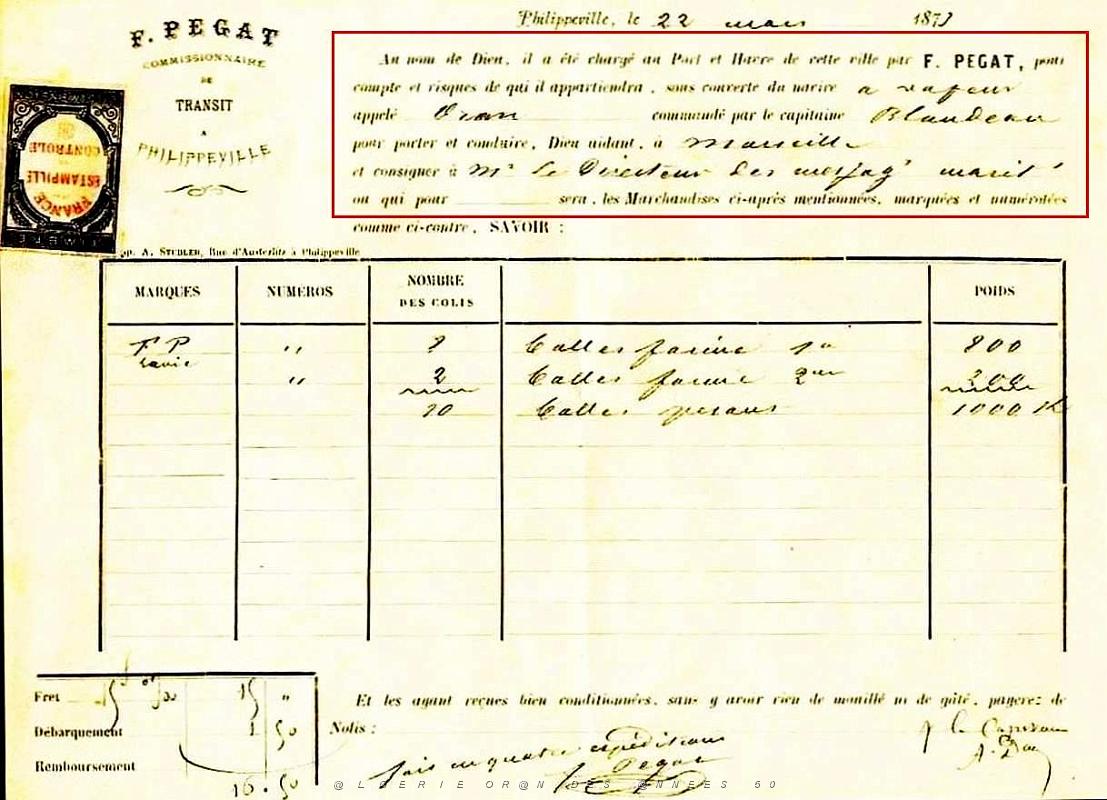 Philippeville, le 22 mars 1873
F. PEGAT
COMMISSIONNAIRE
DE
TRANSIT
A
PHILIPPEVILLE
CONTROLE
ESTAMPILLE
FRANCE
Au nom de Dieu, il a été chargé au Port et Havre de cette ville par F. PEGAT, pour
compte et risques de qui il appartiendra, sous couverte du navire a vapeur
appelé Oran commandé par le capitaine Blandeau
pour porter et conduire, Dieu aidant, à Marseille
et consigner à Mr le Directeur des messag marit
ou qui pour sera, les Marchandises ci-après mentionnées, marquées et numérotées
comme ci-contre, SAVOIR :
Imp. A. STUDLER, Rue d'Austerlitz à Philippeville
MARQUES NUMÉROS NOMBRE DES COLIS POIDS
F P " 8 balles farine 1re 800
" 2 balles farine 2me 200
10 balles pesant 1000 K
Et les ayant reçues bien conditionnées, sans y avoir rien de mouillé ni de gâté, payerez de
Nolis :
Fret 15 "
Débarquement 1 50
Remboursement
16 . 50
fait en quatre expéditions
Pegat
p le Capitaine
@ L G E R I E O R @ N D E S @ N N E E S 6 0